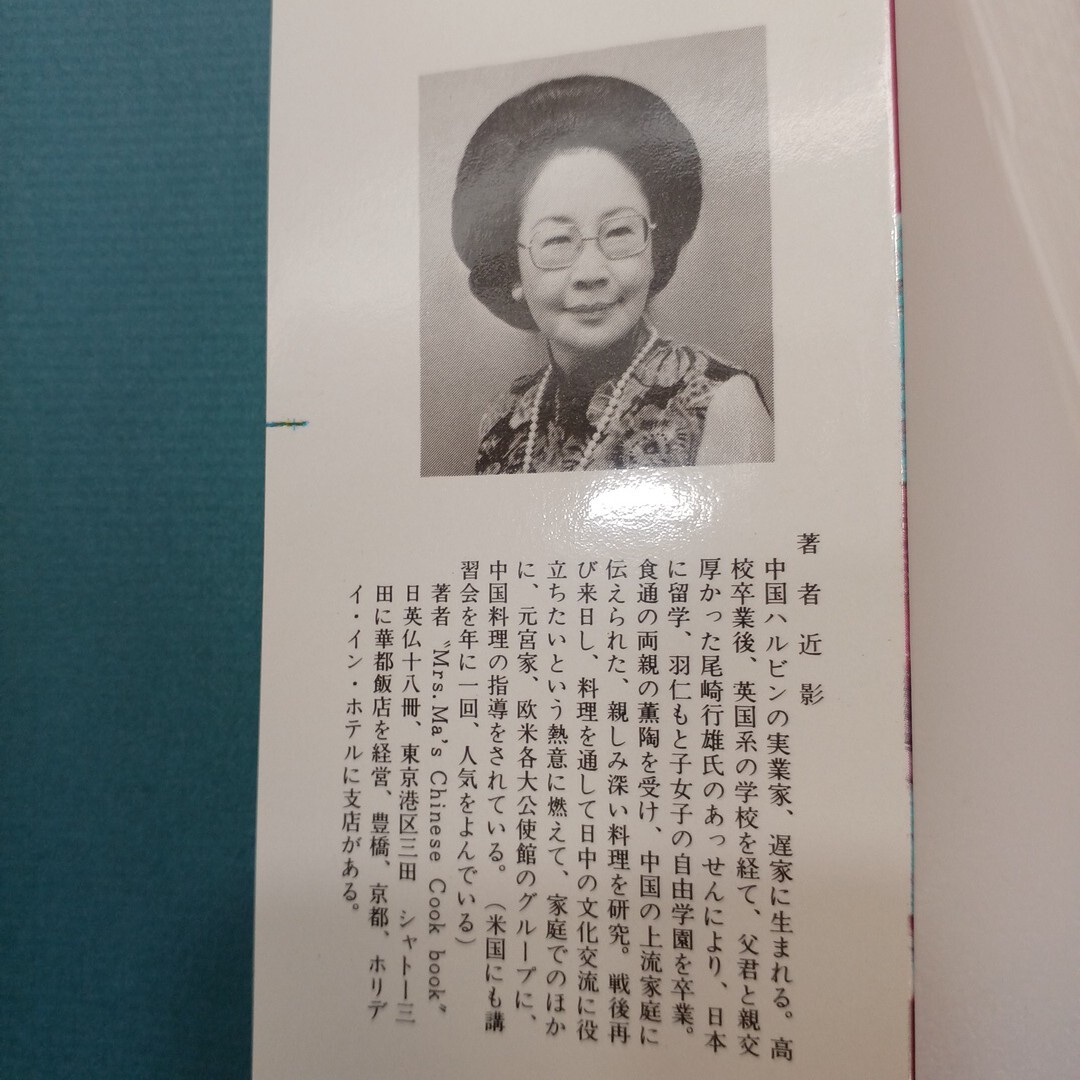 著者近影
中国ハルビンの実業家、遅家に生まれる。高
校卒業後、英国系の学校を経て、父君と親交
厚かった尾崎行雄氏のあっせんにより、日本
に留学、羽仁もと子女子の自由学園を卒業。
食通の両親の薫陶を受け、中国の上流家庭に
伝えられた、親しみ深い料理を研究。戦後再
び来日し、料理を通して日中の文化交流に役
立ちたいという熱意に燃えて、家庭でのほか
に、元宮家、欧米各大公使館のグループに、
中国料理の指導をされている。（米国にも講
習会を年に一回、人気をよんでいる）
著者〝Mrs. Ma's Chinese Cook book〟
日英仏十八冊、東京港区三田　シャトー三
田に華都飯店を経営、豊橋、京都、ホリデ
イ・イン・ホテルに支店がある。